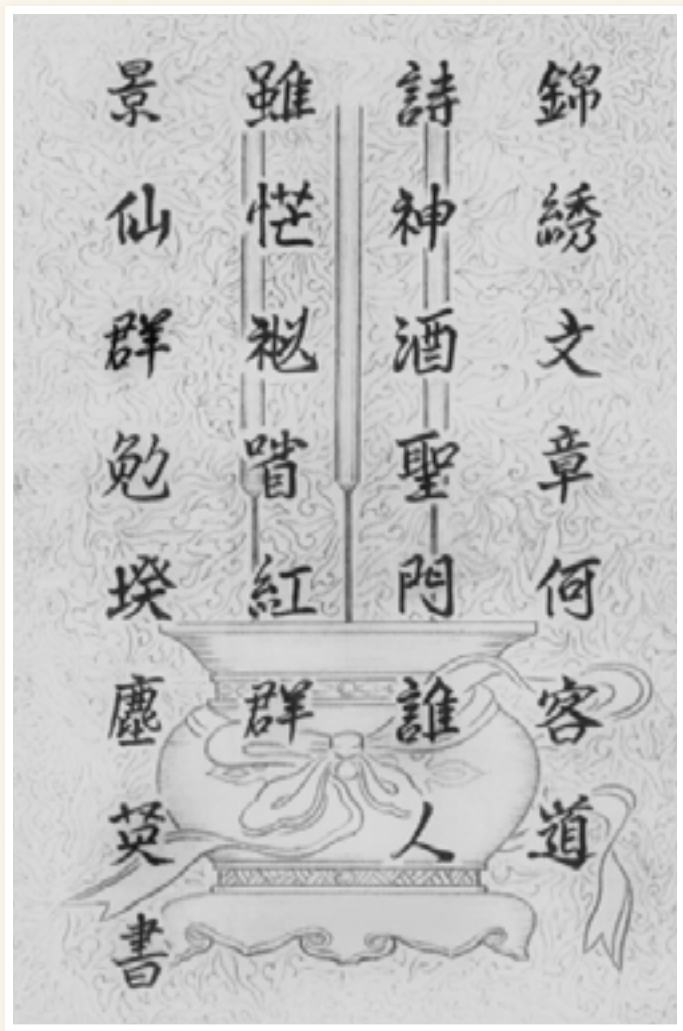 錦綉文章何客道
詩神酒聖門誰人
雖恾𥙩㗂紅群
景仙群勉𡎝塵英書